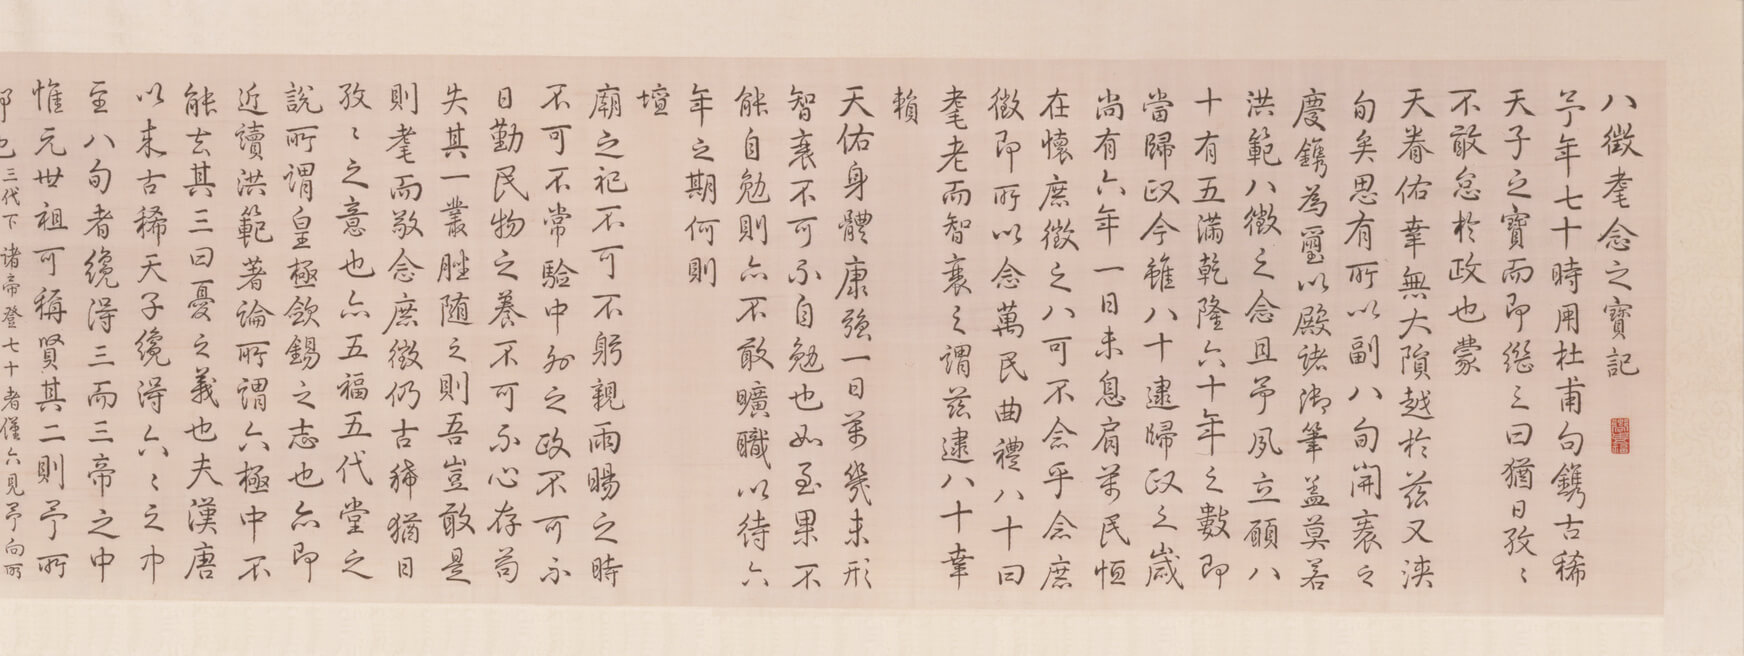 八徵耄念之寶記
予年七十時用杜甫句鐫古稀
天子之寶而即繼之曰猶日孜〻
不敢怠於政也蒙
天眷佑幸無大隕越於茲又浹
旬矣思有所以副八旬開袠之
慶鐫為璽以殿諸御筆盖莫若
洪範八徵之念且予夙立願八
十有五滿乾隆六十年之數即
當歸政今雖八十逮歸政之歲
尚有六年一日未息肩萬民恒
在懷庶徵之八可不念乎念庶
徵即所以念萬民曲禮八十曰
耄老而智衰之謂茲逮八十幸
賴
天佑身體康強一日萬幾未形
智衰不可不自勉也如至果不
能自勉則亦不敢曠職以待六
年之期何則
壇
廟之祀不可不躬親雨暘之時
不可不常驗中外之政不可不
日勤民物之養不可不心存苟
失其一叢脞随之則吾豈敢是
則耄而敬念庶徵仍古稀猶日
孜〻之意也亦五福五代堂之
說所謂皇極斂錫之志也亦即
近讀洪範著論所謂六極中不
能去其三曰憂之義也夫漢唐
以來古稀天子纔得六〻之中
至八旬者纔得三而三帝之中
惟元世祖可稱賢其二則予所
鄙也三代下諸帝登七十者僅六見予向所